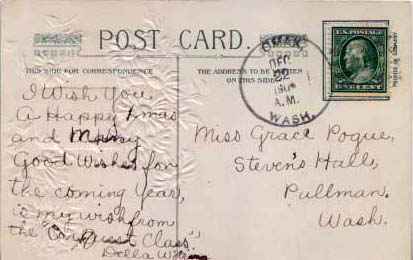 POST CARD.
THIS SIDE FOR CORRESPONDENCE
THE ADDRESS TO BE WRITTEN
ON THIS SIDE
OMAK,
DEC
22
A.M.
WASH.
U.S. POSTAGE
ONE CENT
PRINTED IN GERMANY
I Wish You
A Happy Xmas
and Many
Good Wishes for
the coming Year,
is my wish from
the Class",
Della
Miss Grace Pogue,
Steven's Hall,
Pullman,
Wash.